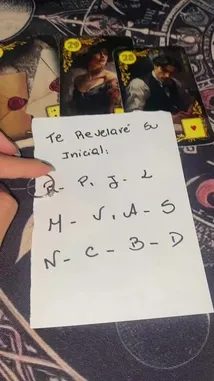 29
28
Te Revelaré Su
Inicial:
R- P, J- L
M- V, A- S
N- C- B- D